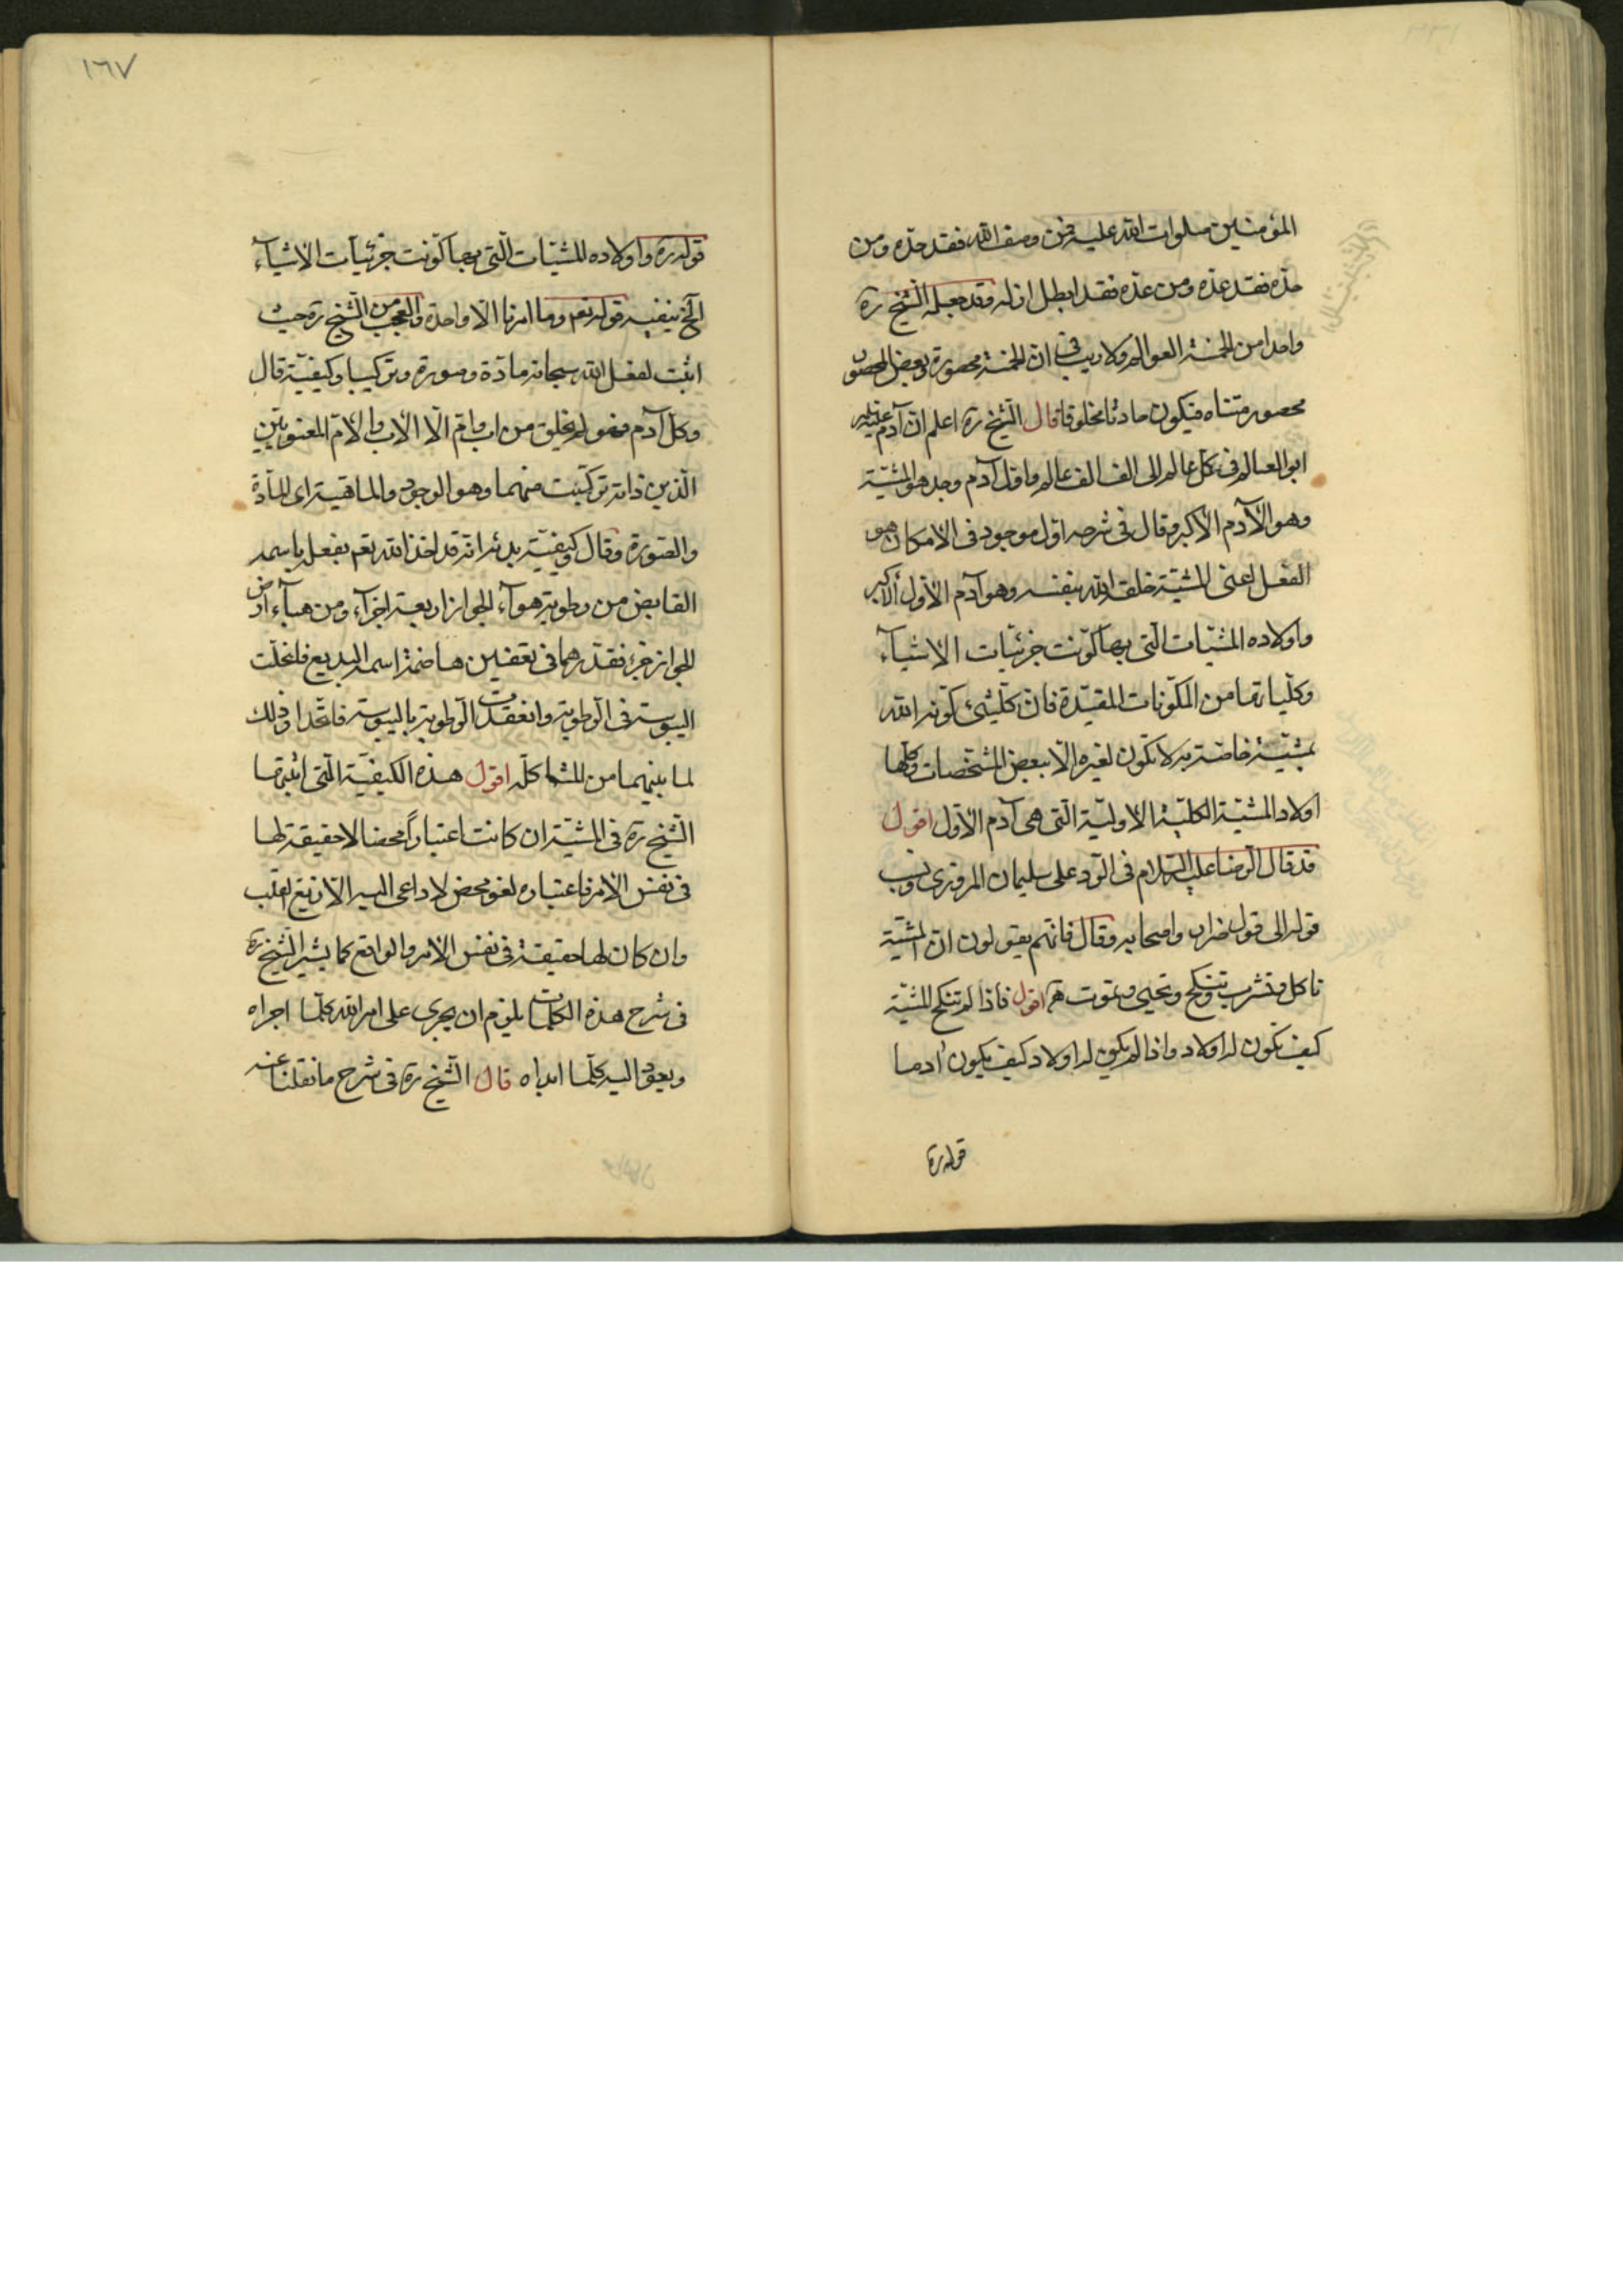 المؤمنين صلوات الله عليه فمن وصف الله فقد حدّه ومن
حدّه فقد عدّه ومن عدّه فقد ابطل ازله وقد جعله الشّيخ ره
واحدا من الخمسة العوالم ولا ريب فى انّ الخمسة محصورة وبعض المحصور
محصور متناه فيكون حادثا مخلوقا قال الشّيخ ره اعلم ان آدم عليه
ابو العالم فى كل عالم الى الف الف عالم واوّل آدم وجد هو المشيّة
وهو الآدم الاكبر وقال فى شرحه اوّل موجود فى الامكان هو
الفعل اعنى المشيّة خلقه الله بنفسه وهو آدم الاوّل الاكبر
واولاده المشيّات الّتى بها كوّنت جزئيّات الاشيآء
وكلّياتها من المكوّنات المقيّدة فانّ كلّ شئ كوّنه الله
بمشيّة خاصّة به لا تكون لغيره الّا ببعض المشخّصات وكلّها
اولاد المشيّة الكليّة الاوليّة الّتى هى آدم الاوّل اقول
قد قال الرّضا عليه السّلام فى الرّد على سليمان المروزى ونسب
قوله الى قول ضرار واصحابه وقال فانّهم يقولون انّ المشيّة
تاكل وتشرب وتنكح وتحيى وتموت اقول فاذا لم تنكح المشيّة
كيف يكون له اولاد واذا لم يكن له اولاد كيف يكون آدما
قوله ره
١٦٧
قوله ره واولاده المشيّات الّتى بها كوّنت جزئيّات الاشيآء
الخ ينفيه قوله تعم وما امرنا الّا واحدة والعجب من الشّيخ ره حيث
اثبت لفعل الله سبحانه مادّة وصورة وتركيبا وكيفيّة قال
وكل آدم فهو لم يخلق من اب وامّ الّا الاب والامّ المعنويّين
الّذين ذاته تركّبت منهما وهو الوجود والماهيّة اى المادّة
والصّورة وقال وكيفيّة بدئه انّه قد اخذ الله تعم بفعله باسمه
القابض من رطوبة هوآء الجواز اربعة اجزآء ومن هبآء ارض
الجواز جزء فقدّرهما فى تعفين هاضمة اسمه البديع فانحلّت
اليبوسة فى الرّطوبة وانعقدت الرّطوبة باليبوسة فاتّحدا وذلك
لما بينهما من المشاكله اقول هذه الكيفيّة الّتى اثبتها
الشّيخ ره فى المشيّة ان كانت اعتباراً محضا لا حقيقة لها
فى نفس الامر فاعتباره لغو محض لا داعى اليه الّا زيغ القلب
وان كان لها حقيقة فى نفس الامر والواقع كما يشير الشّيخ ره
فى شرح هذه الكلمات يلزم ان يجرى على امر الله كلّما اجراه
ويعود اليه كلّما ابداه قال الشّيخ ره فى شرح ما نقلنا عنه